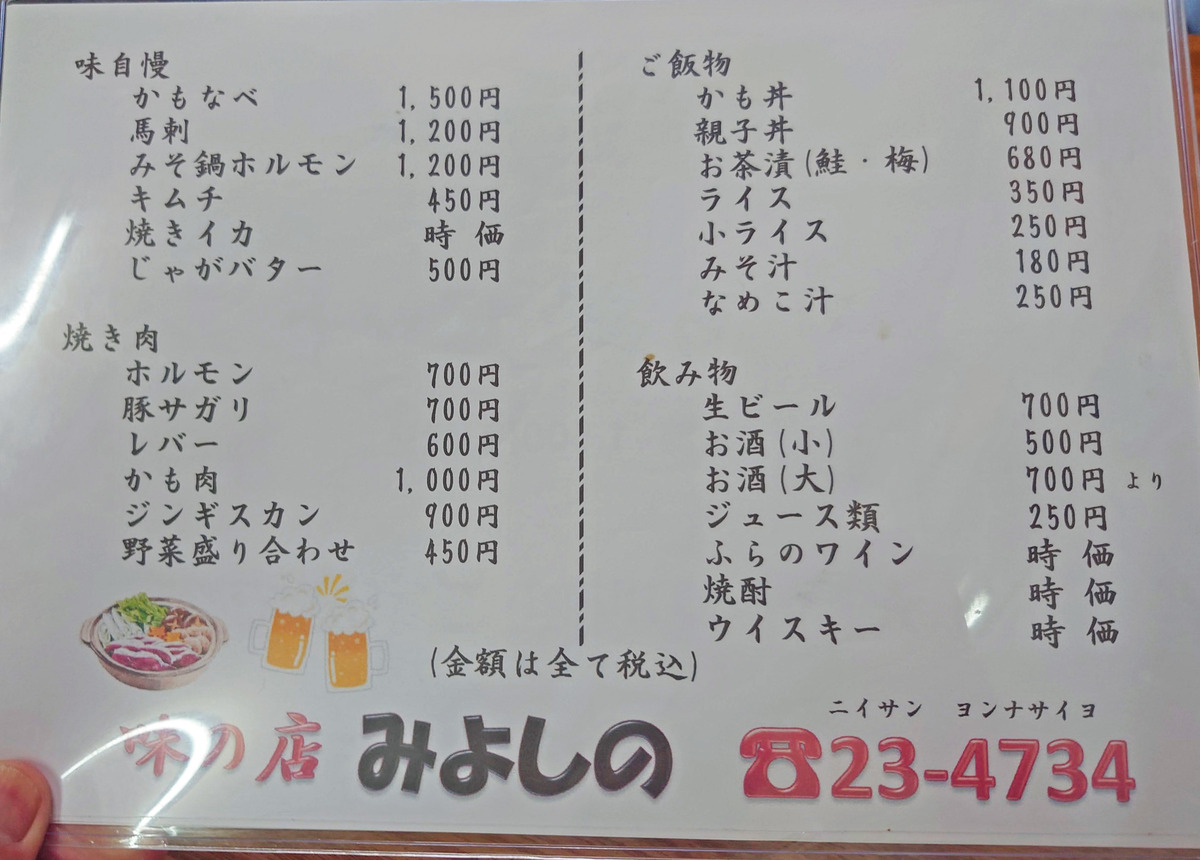 味自慢
かもなべ 1,500円
馬刺 1,200円
みそ鍋ホルモン 1,200円
キムチ 450円
焼きイカ 時 価
じゃがバター 500円
焼き肉
ホルモン 700円
豚サガリ 700円
レバー 600円
かも肉 1,000円
ジンギスカン 900円
野菜盛り合わせ 450円
ご飯物
かも丼 1,100円
親子丼 900円
お茶漬(鮭・梅) 680円
ライス 350円
小ライス 250円
みそ汁 180円
なめこ汁 250円
飲み物
生ビール 700円
お酒(小) 500円
お酒(大) 700円 より
ジュース類 250円
ふらのワイン 時 価
焼酎 時 価
ウイスキー 時 価
(金額は全て税込)
味の店 みよしの
ニイサン ヨンナサイヨ
☎23-4734